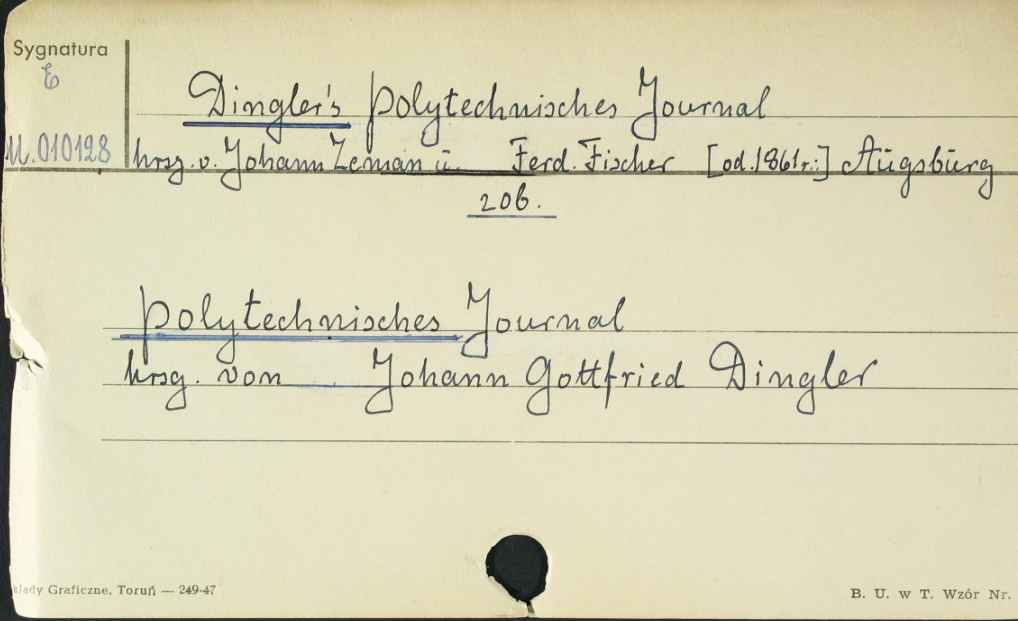 Sygnatura
E
Dingler's polytechnisches Journal
M.010128
hrsg. v. Johann Zeman u. Ferd. Fischer [od.1861r.:] Augsburg
206.
polytechnisches Journal
hrsg. von Johann Gottfried Dingler
kłady Graficzne, Toruń — 249-47
B. U. w T. Wzór Nr.